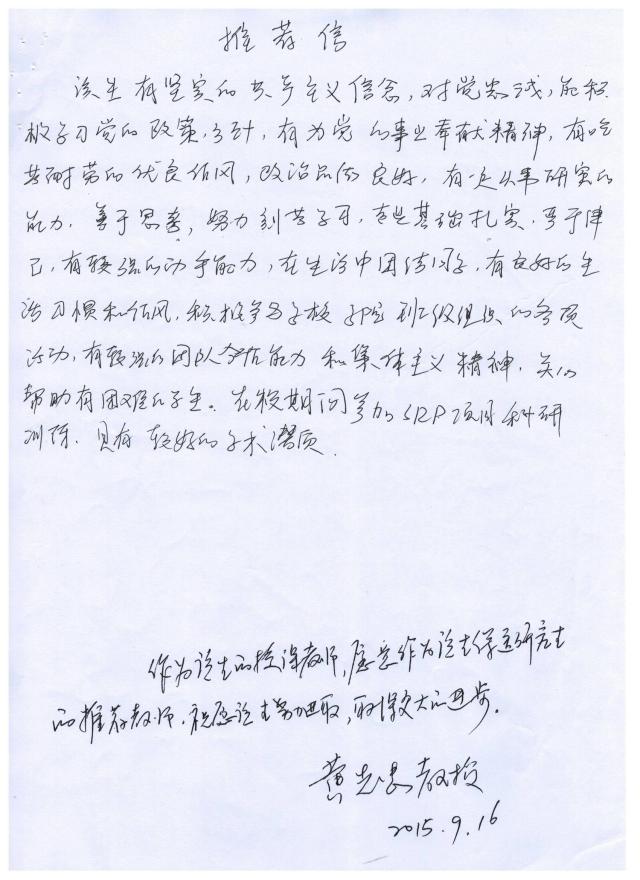 推荐信
该生有坚实的共产主义信念,对党忠诚,能积
极学习党的政策、方针,有为党的事业奉献精神,有吃
苦耐劳的优良作风,政治品德良好,有一定从事研究的
能力,善于思考,努力刻苦学习,专业基础扎实,严于律
己,有较强的动手能力,在生活中团结同学,有良好的生
活习惯和作风,积极参与学校 学院 班级组织的各项
活动,有较强的团队合作能力 和集体主义 精神,关心
帮助有困难的学生。在校期间参加SRP项目科研
训练,具有较好的学术潜质.
作为该生的授课教师,愿意作为该生保送研究生
的推荐教师.祝愿该生努力进取,取得较大的进步.
黄 教授
2015.9.16